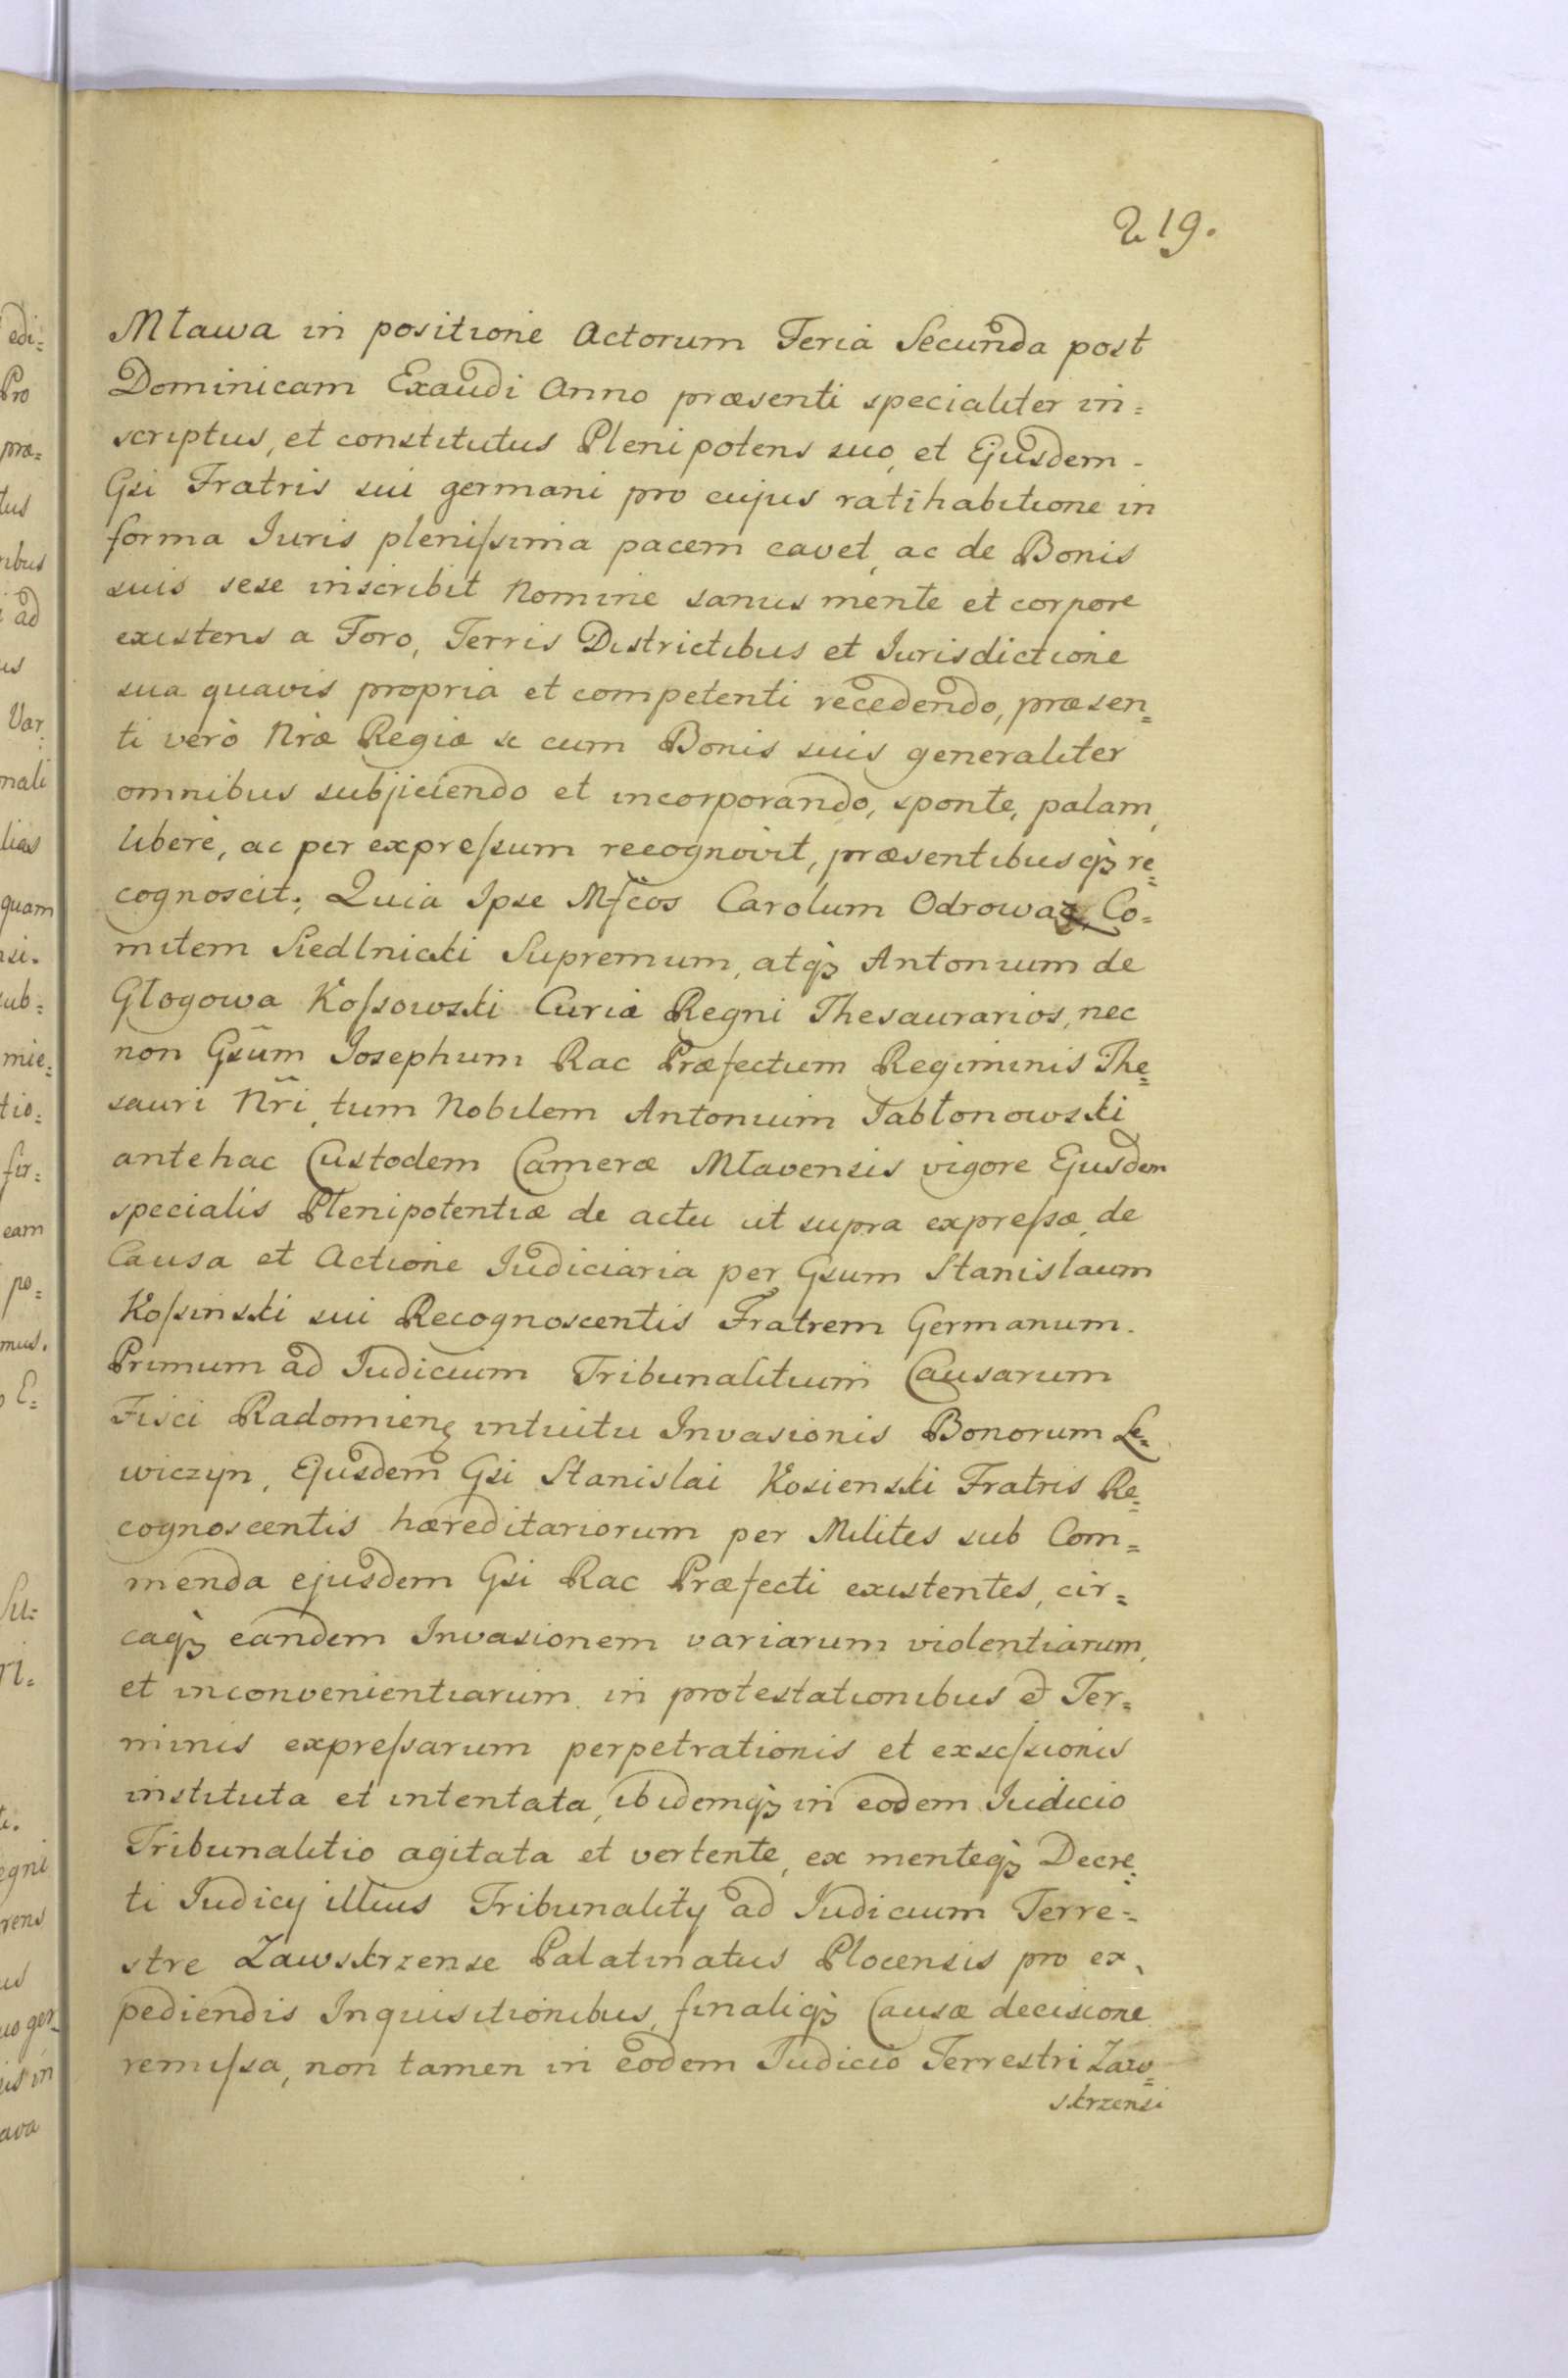 219.
Mława in positione Actorum Feria Secunda post
Dominicam Exaudi Anno præsenti specialiter in=
scriptus, et constitutus Plenipotens suo, et Ejusdem
Gsi Fratris sui germani pro cujus ratihabitione in
forma Iuris pleniſsima pacem cavet, ac de Bonis
suis sese inscribit Nomine sanus mente et corpore
existens a Foro, Terris Districtibus et Iurisdictione
sua quavis propria et competenti recedendo, præsen=
ti verò Nræ Regiæ se cum Bonis suis generaliter
omnibus subjiciendo et incorporando, sponte, palam,
liberè, ac per expreſsum recognovit, præsentibusqꝫ re=
cognoscit; Quia Ipse Mfcos Carolum Odrowąz Co=
mitem Siedlnicki Supremum, atqꝫ Antonium de
Głogowa Koſsowski Curiæ Regni Thesaurarios, nec
non Gsum Iosephum Rac Præfectum Regiminis The=
sauri Nri, tum Nobilem Antonium Jabłonowski
antehac Custodem Cameræ Mławensis vigore Ejusdem
specialis Plenipotentiæ de actu ut supra expreſsæ, de
Causa et Actione Iudiciaria per Gsum Stanislaum
Koſsinski sui Recognoscentis Fratrem Germanum.
Primum ad Iudicium Tribunalitium Causarum
Fisci Radomien intuitu Invasionis Bonorum Le=
wiczyn, Ejusdem Gsi Stanislai Kosienski Fratris Re=
cognoscentis hæreditariorum per Milites sub Com=
menda ejusdem Gsi Rac Præfecti existentes, cir=
caqꝫ eandem Invasionem variarum violentiarum,
et inconvenientiarum in protestationibus et Ter=
minis expreſsarum perpetrationis et exseſsionis
instituta et intentata, ibidemqꝫ in eodem Iudicio
Tribunalitio agitata et vertente, ex menteqꝫ Decre=
ti Iudicij illius Tribunalitij ad Iudicium Terre=
stre Zawskrzense Palatinatus Plocensis pro ex=
pediendis Inquisitionibus, finaliqꝫ Causæ decisione
remiſsa, non tamen in eodem Iudicio Terrestri Zaw=
skrzensi
edi=
Pro
præ=
tus
ad
us
Var
nali
lias
quam
nsi.
sub=
mie=
tio=
fir=
eam
po=
mus.
Su=
ri=
egni
rens
us
uo ger
ava